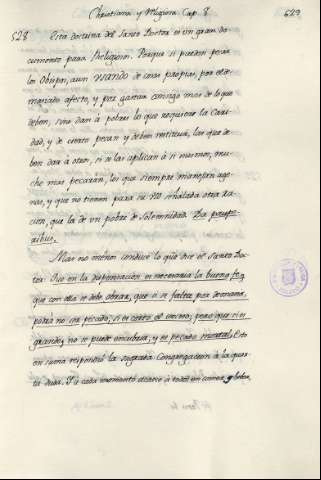 Christiana y Religiosa Cap. 8 529
528 Esta doctrina del Santo Doctor es un gran do
cumento para Religiosos. Porque si pueden pecar
los Obispos, aun usando de cosas propias, por
afecto, y por gastar consigo mas de lo que
deben, sino dan à pobres lo que requiere la Cari
dad, y de cierto pecan y deben restituir, los que de
ben dar à otros, si se las aplican à si mismos, mu
cho mas pecaràn, los que siempre manejan age
nas, y que no tienen para su señalada otra
cion, que la de un pobre de solemnidad.
Mas no menos conduce lo que dice el Santo Doc
tor: Que en la dispensacion es necesaria la buena fee
que con ella se debe obrar, que si se falta por demasia,
podrà no ser pecado, si es corto el exceso; pero que si es
grande, no se puede encubrir, y es pecado mortal. Esto
en suma respondiò la sagrada Congregacion à la
duda. Y à cada momento à todos en comer, y beber,